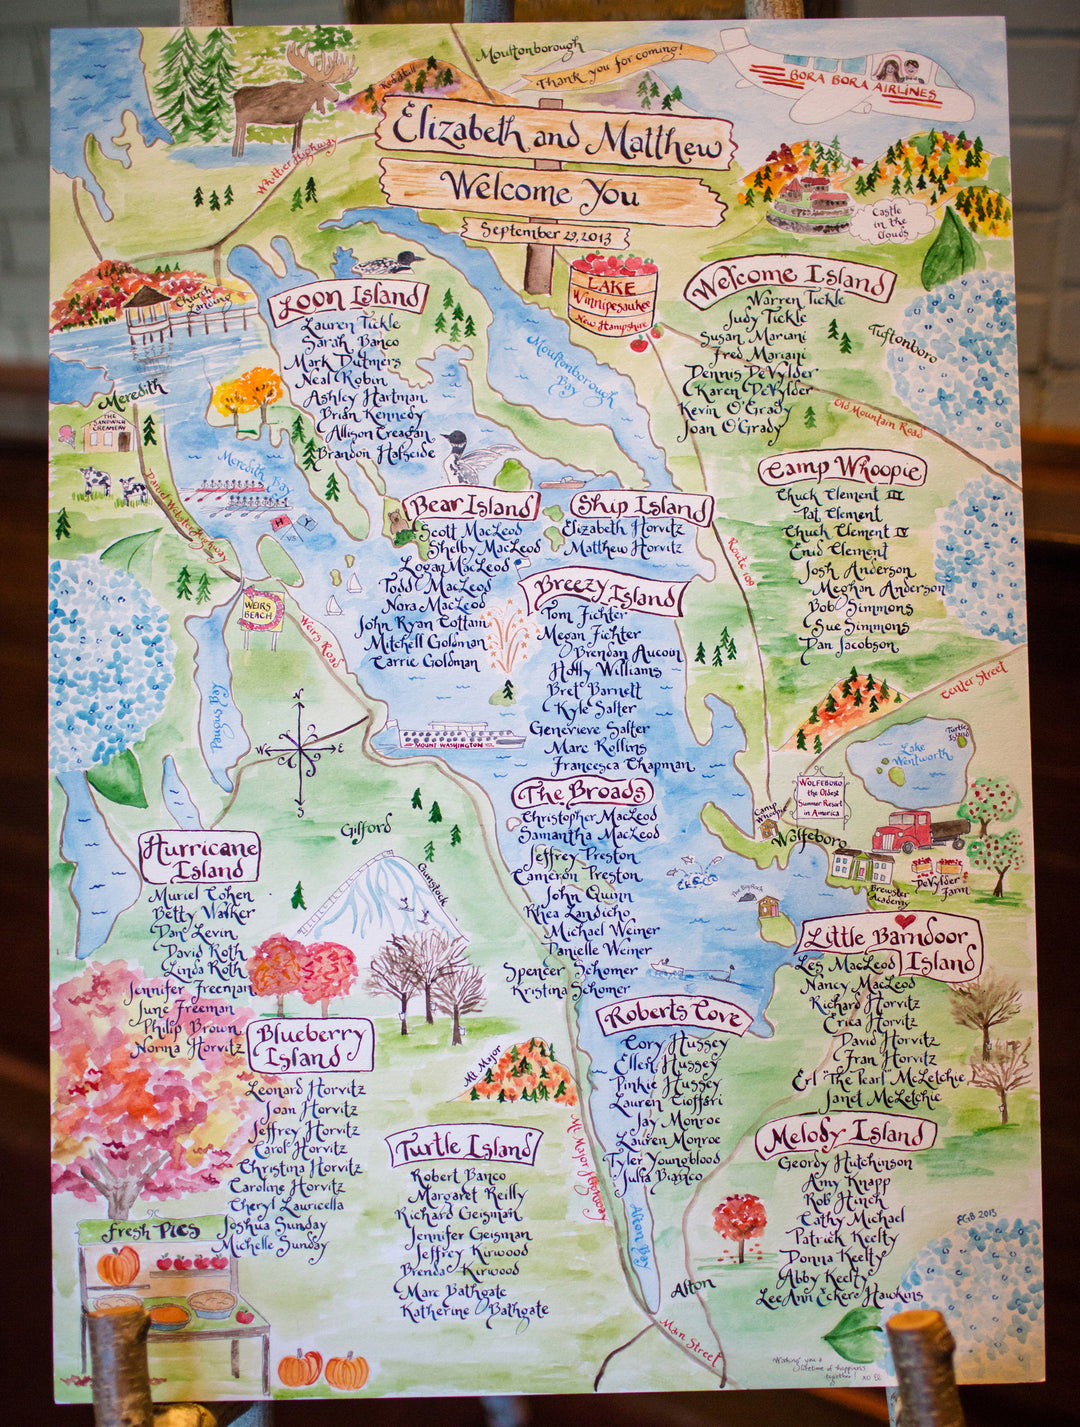 Moultonborough
Thank you for coming!
BORA BORA AIRLINES
Red Hill
Elizabeth and Matthew
Welcome You
September 29, 2013
Whittier Highway
Castle
in the
Clouds
LAKE
Winnipesaukee
New Hampshire
Church
Landing
Loon Island
Lauren Tickle
Sarah Banco
Mark Dutmers
Neal Robin
Ashley Hartman
Brian Kennedy
Allison Creagan
Brandon Hafseide
Welcome Island
Warren Tickle
Judy Tickle
Susan Mariani
Fred Mariani
Dennis DeVylder
Karen DeVylder
Kevin O'Grady
Joan O'Grady
Moultonborough
Bay
Tuftonboro
Old Mountain Road
Meredith
THE
SANDWICH
CREAMERY
Meredith
Bay
Daniel Webster Highway
H
Y
VS
Bear Island
Scott MacLeod
Shelby MacLeod
Logan MacLeod
Todd MacLeod
Nora MacLeod
John Ryan Cottam
Mitchell Goldman
Carrie Goldman
Ship Island
Elizabeth Horvitz
Matthew Horvitz
Camp Whoopie
Chuck Clement III
Pat Clement
Chuck Clement IV
Enid Clement
Josh Anderson
Meghan Anderson
Bob Simmons
Sue Simmons
Dan Jacobson
Route 109
Breezy Island
Tom Fichter
Megan Fichter
Brendan Aucoin
Holly Williams
Bret Barnett
Kyle Salter
Genevieve Salter
Marc Rollins
Francesca Chapman
WEIRS
BEACH
Weirs Road
Paugus Bay
N
W
E
S
MOUNT WASHINGTON
Center Street
Turtle
Island
Lake
Wentworth
WOLFEBORO
the Oldest
Summer Resort
in America
Camp
Whoopie
Wolfeboro
Brewster
Academy
DeVylder
Farm
The Broads
Christopher MacLeod
Samantha MacLeod
Jeffrey Preston
Cameron Preston
John Quinn
Rhea Landicho
Michael Weiner
Danielle Weiner
Spencer Schomer
Kristina Schomer
Gilford
Gunstock
The Big Rock
Hurricane
Island
Muriel Cohen
Betty Walker
Dan Levin
David Roth
Linda Roth
Jennifer Freeman
June Freeman
Philip Brown
Norma Horvitz
Little Barndoor
Island
Les MacLeod
Nancy MacLeod
Richard Horvitz
Erica Horvitz
David Horvitz
Fran Horvitz
Erl "The Pearl" McLetchie
Janet McLetchie
Blueberry
Island
Leonard Horvitz
Joan Horvitz
Jeffrey Horvitz
Carol Horvitz
Christina Horvitz
Caroline Horvitz
Cheryl Lauricella
Joshua Sunday
Michelle Sunday
Roberts Cove
Cory Hussey
Ellen Hussey
Pinkie Hussey
Lauren Cioffari
Jay Monroe
Lauren Monroe
Tyler Youngblood
Julia Bianco
Mt. Major
Mt. Major Highway
Turtle Island
Robert Banco
Margaret Reilly
Richard Geisman
Jennifer Geisman
Jeffrey Kirwood
Brenda Kirwood
Marc Bathgate
Katherine Bathgate
Melody Island
Geordy Hutchinson
Amy Knapp
Rob Hinch
Cathy Michael
Patrick Keelty
Donna Keelty
Abby Keelty
LeeAnn Eckero Hawkins
Alton Bay
Alton
Main Street
Fresh Pies
EGB 2013
Wishing you a
lifetime of happiness
together!